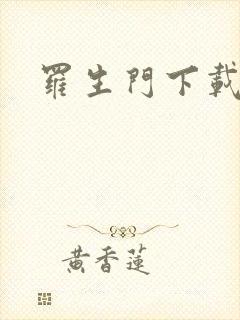 羅生門下載
黃香蓮